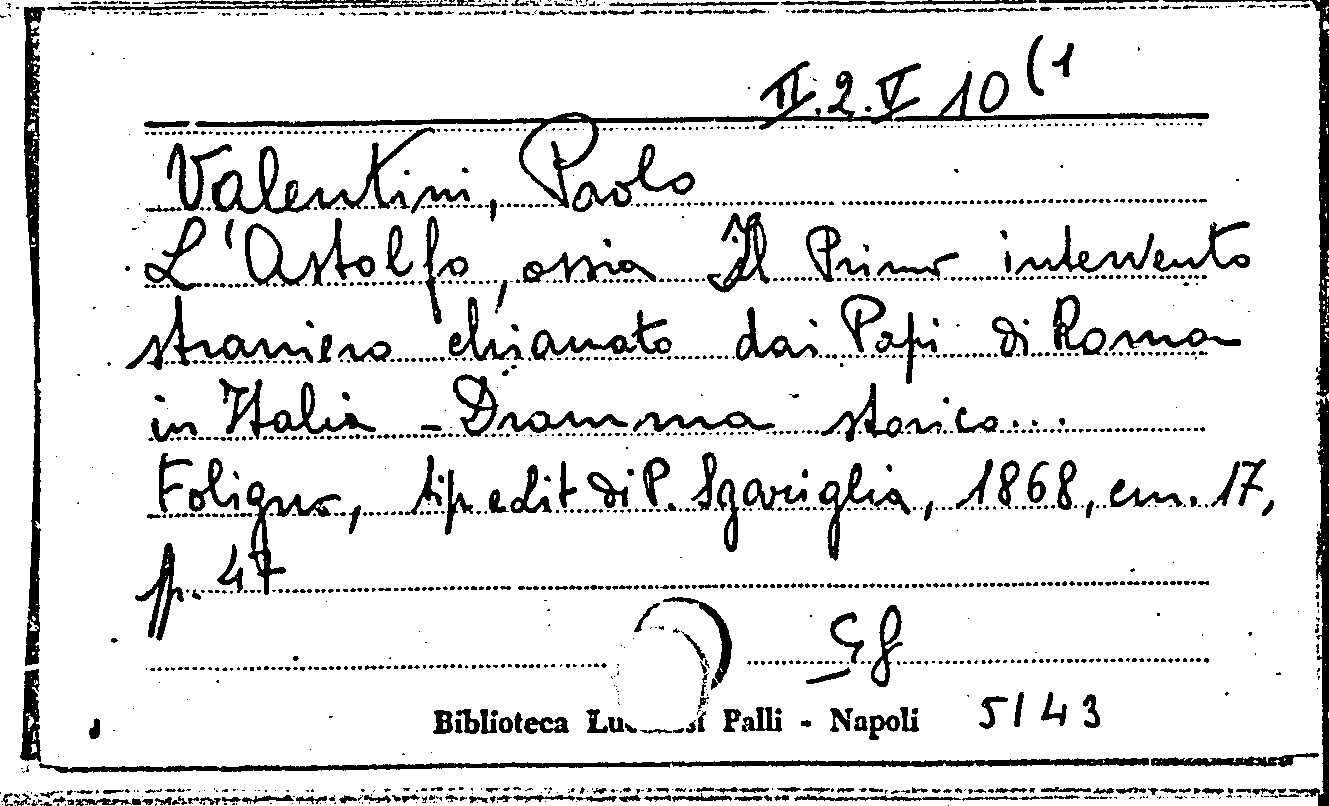 II.2.V 10 (1
Valentini, Paolo
L'Astolfo, ossia Il Primo intervento
straniero chiamato dai Papi di Roma
in Italia - Dramma storico...
Foligno, tip edit di P. Sgariglia, 1868, cm. 17,
p. 47
Biblioteca Palli - Napoli 5143